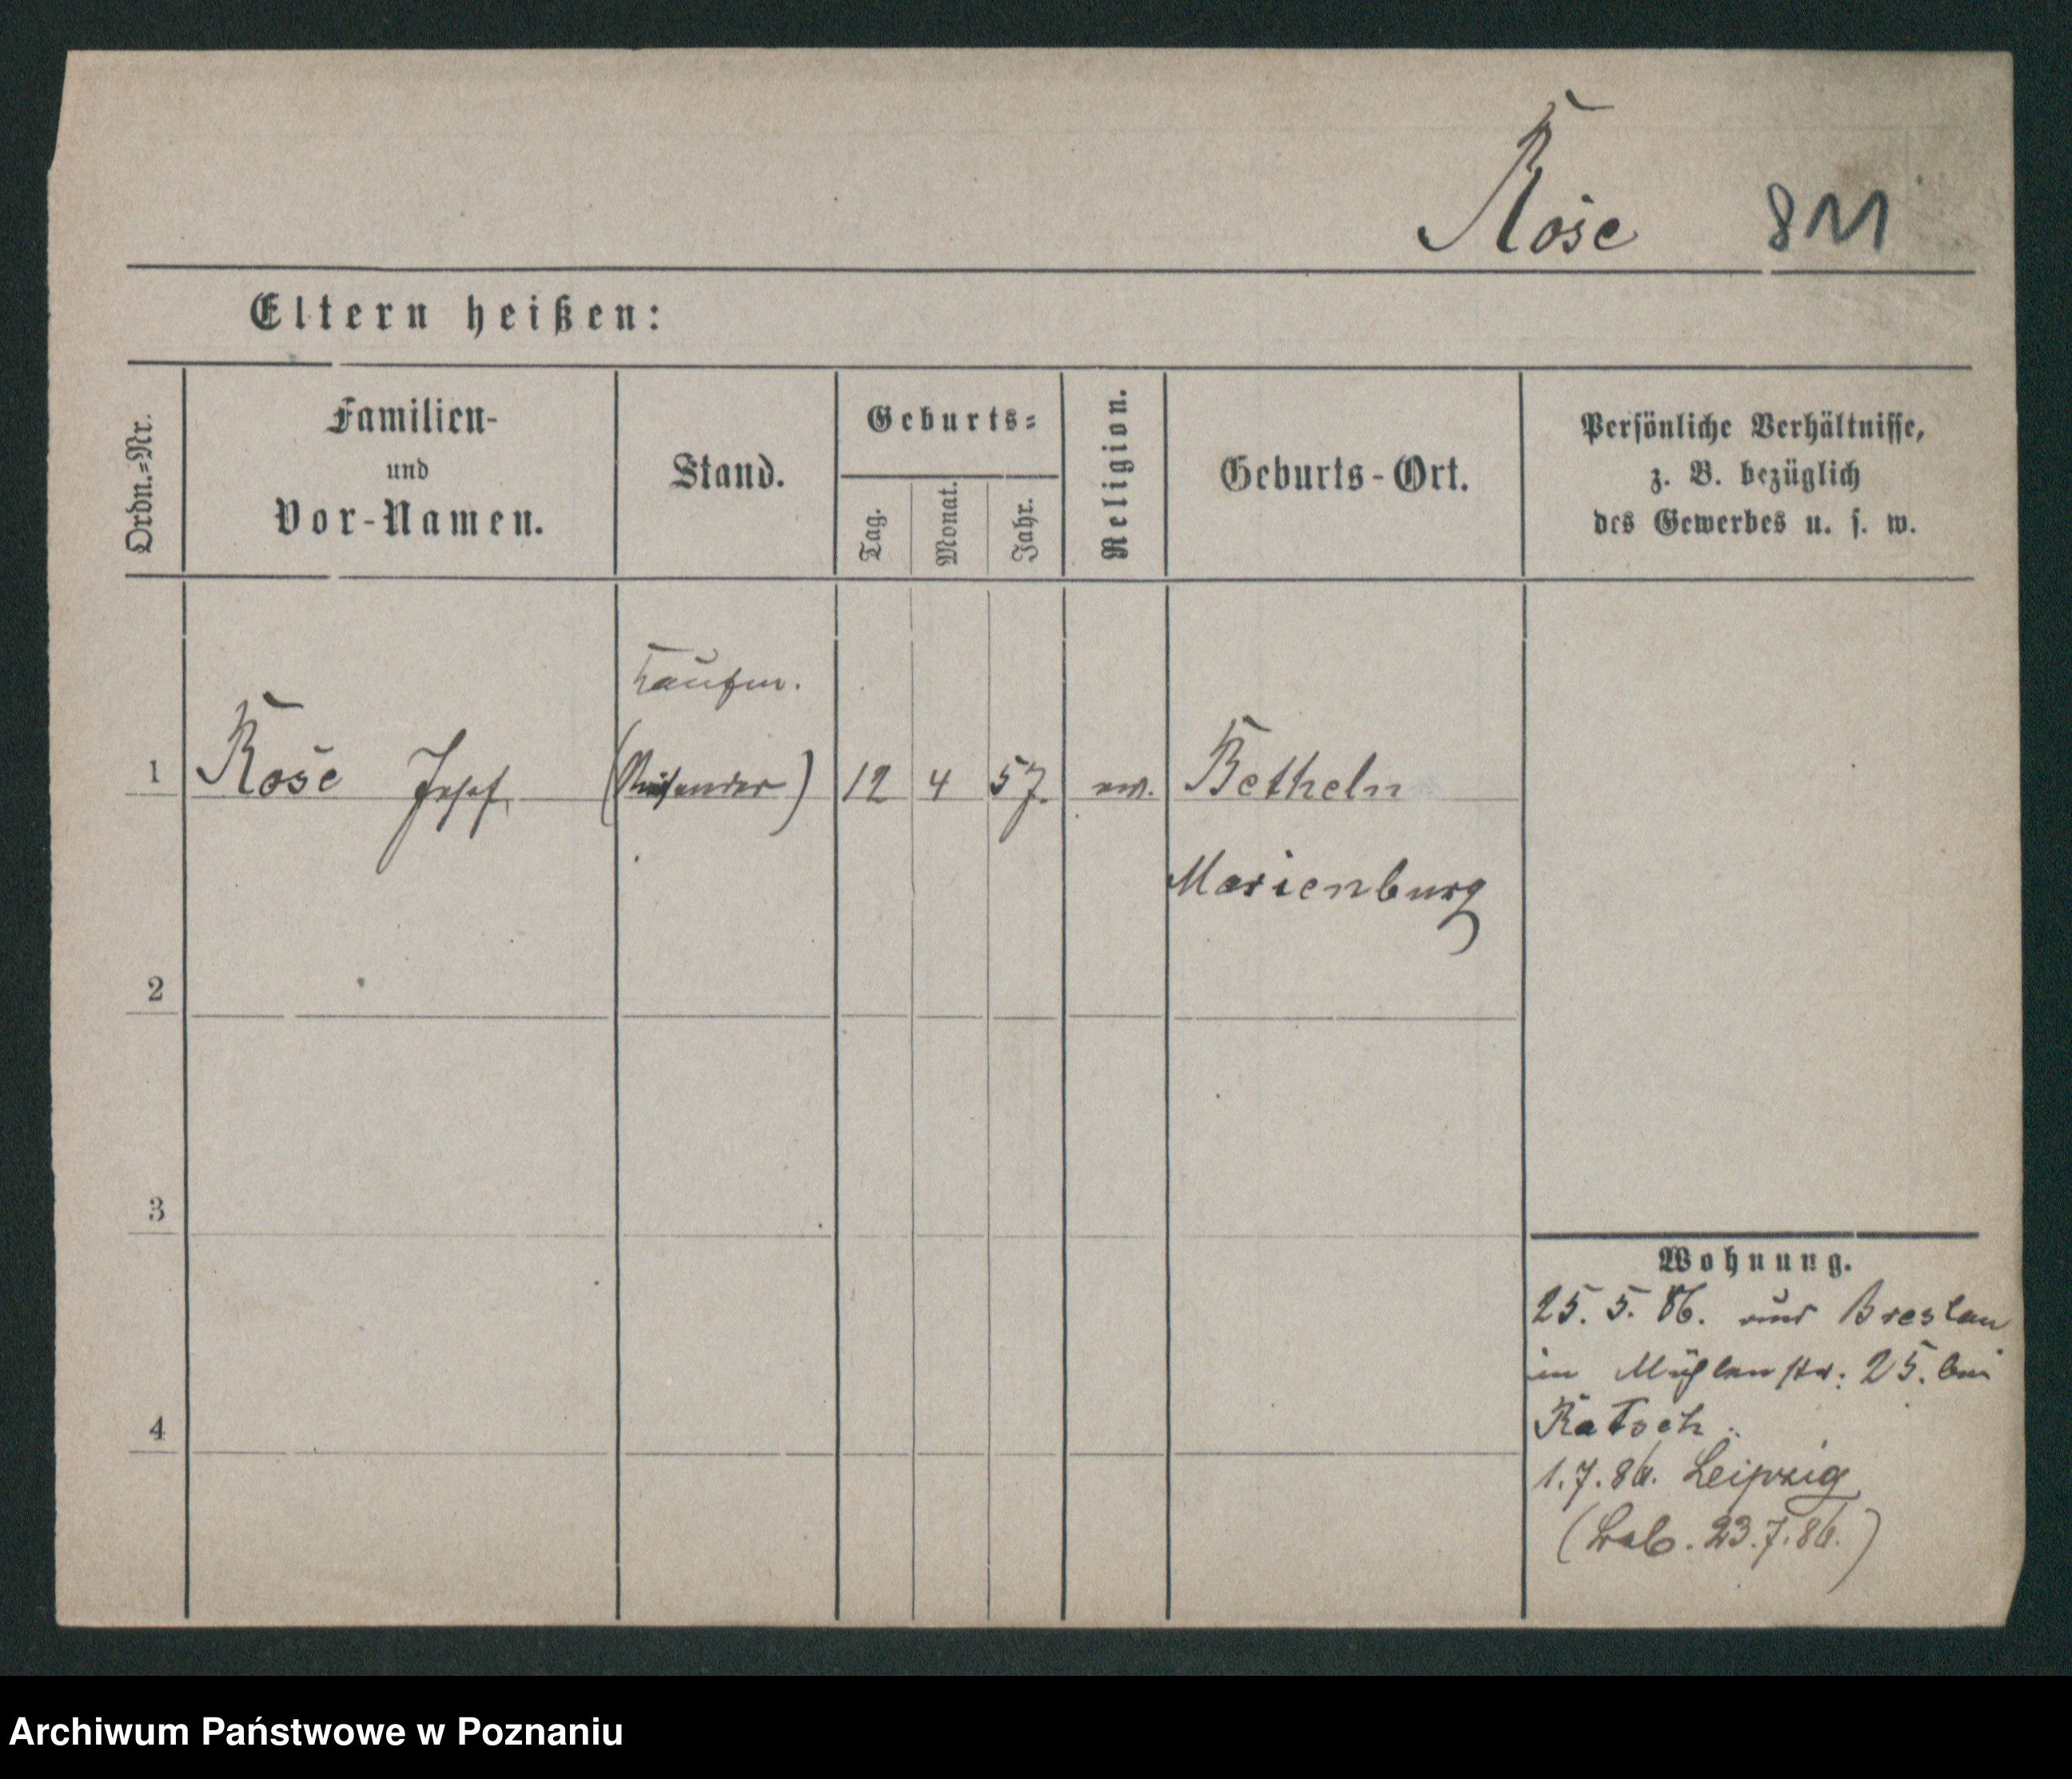 Rose 811
Eltern heißen:
Ordn.=Nr.
Familien-
und
Vor-Namen.
Stand.
Geburts=
Tag.
Monat.
Jahr.
Religion.
Geburts-Ort.
Persönliche Verhältnisse,
z. B. bezüglich
des Gewerbes u. s. w.
Kaufm.
1 Rose Josef (Reisender) 12 4 57. ev. Betheln
Marienburg
2
3
4
Wohnung.
25. 5. 86. aus Breslau
in Mühlenstr: 25. bei
Ratsch.
1. 7. 86. Leipzig
23. 7. 86.)
Archiwum Państwowe w Poznaniu